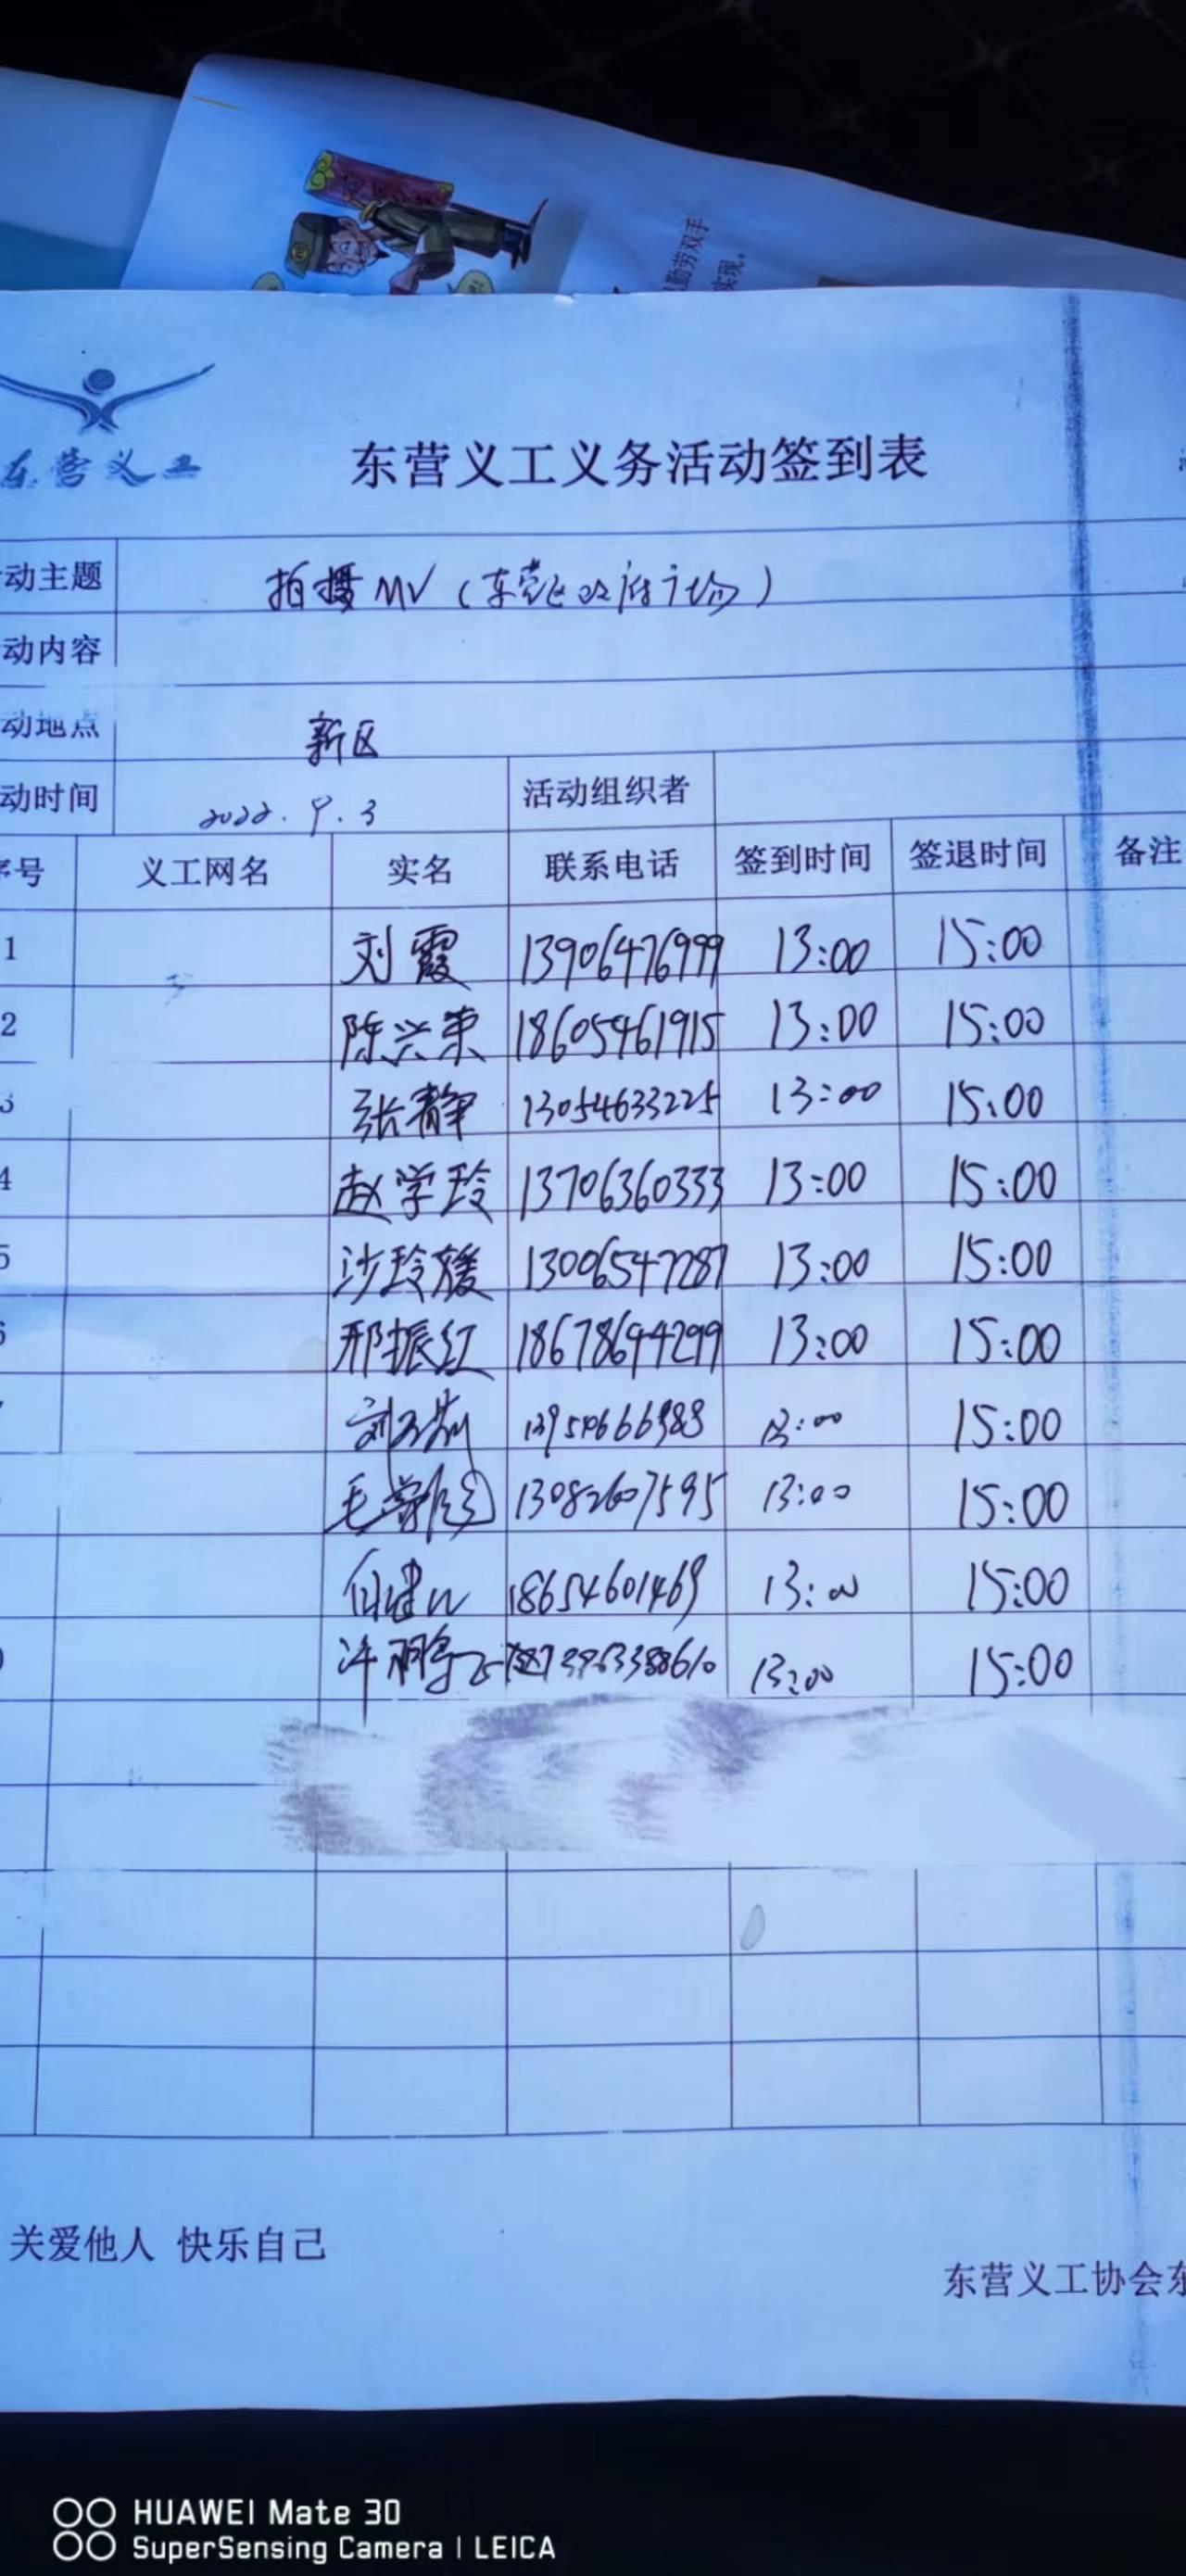 勤劳双手
实现。
东营义工
东营义工义务活动签到表
动主题 拍摄MV（东营区政府广场）
动内容
动地点 新区
动时间 2022.9.3 活动组织者
序号 义工网名 实名 联系电话 签到时间 签退时间 备注
1 刘霞 13906476999 13:00 15:00
2 陈兴荣 18605461915 13:00 15:00
3 张静 13054633225 13:00 15:00
4 赵学玲 13706360333 13:00 15:00
5 沙玲媛 13006547287 13:00 15:00
6 邢振红 18678694299 13:00 15:00
13:00 15:00
13082607595 13:00 15:00
18654601469 13:00 15:00
许鹏飞 13:00 15:00
关爱他人 快乐自己
东营义工协会东
HUAWEI Mate 30
SuperSensing Camera | LEICA